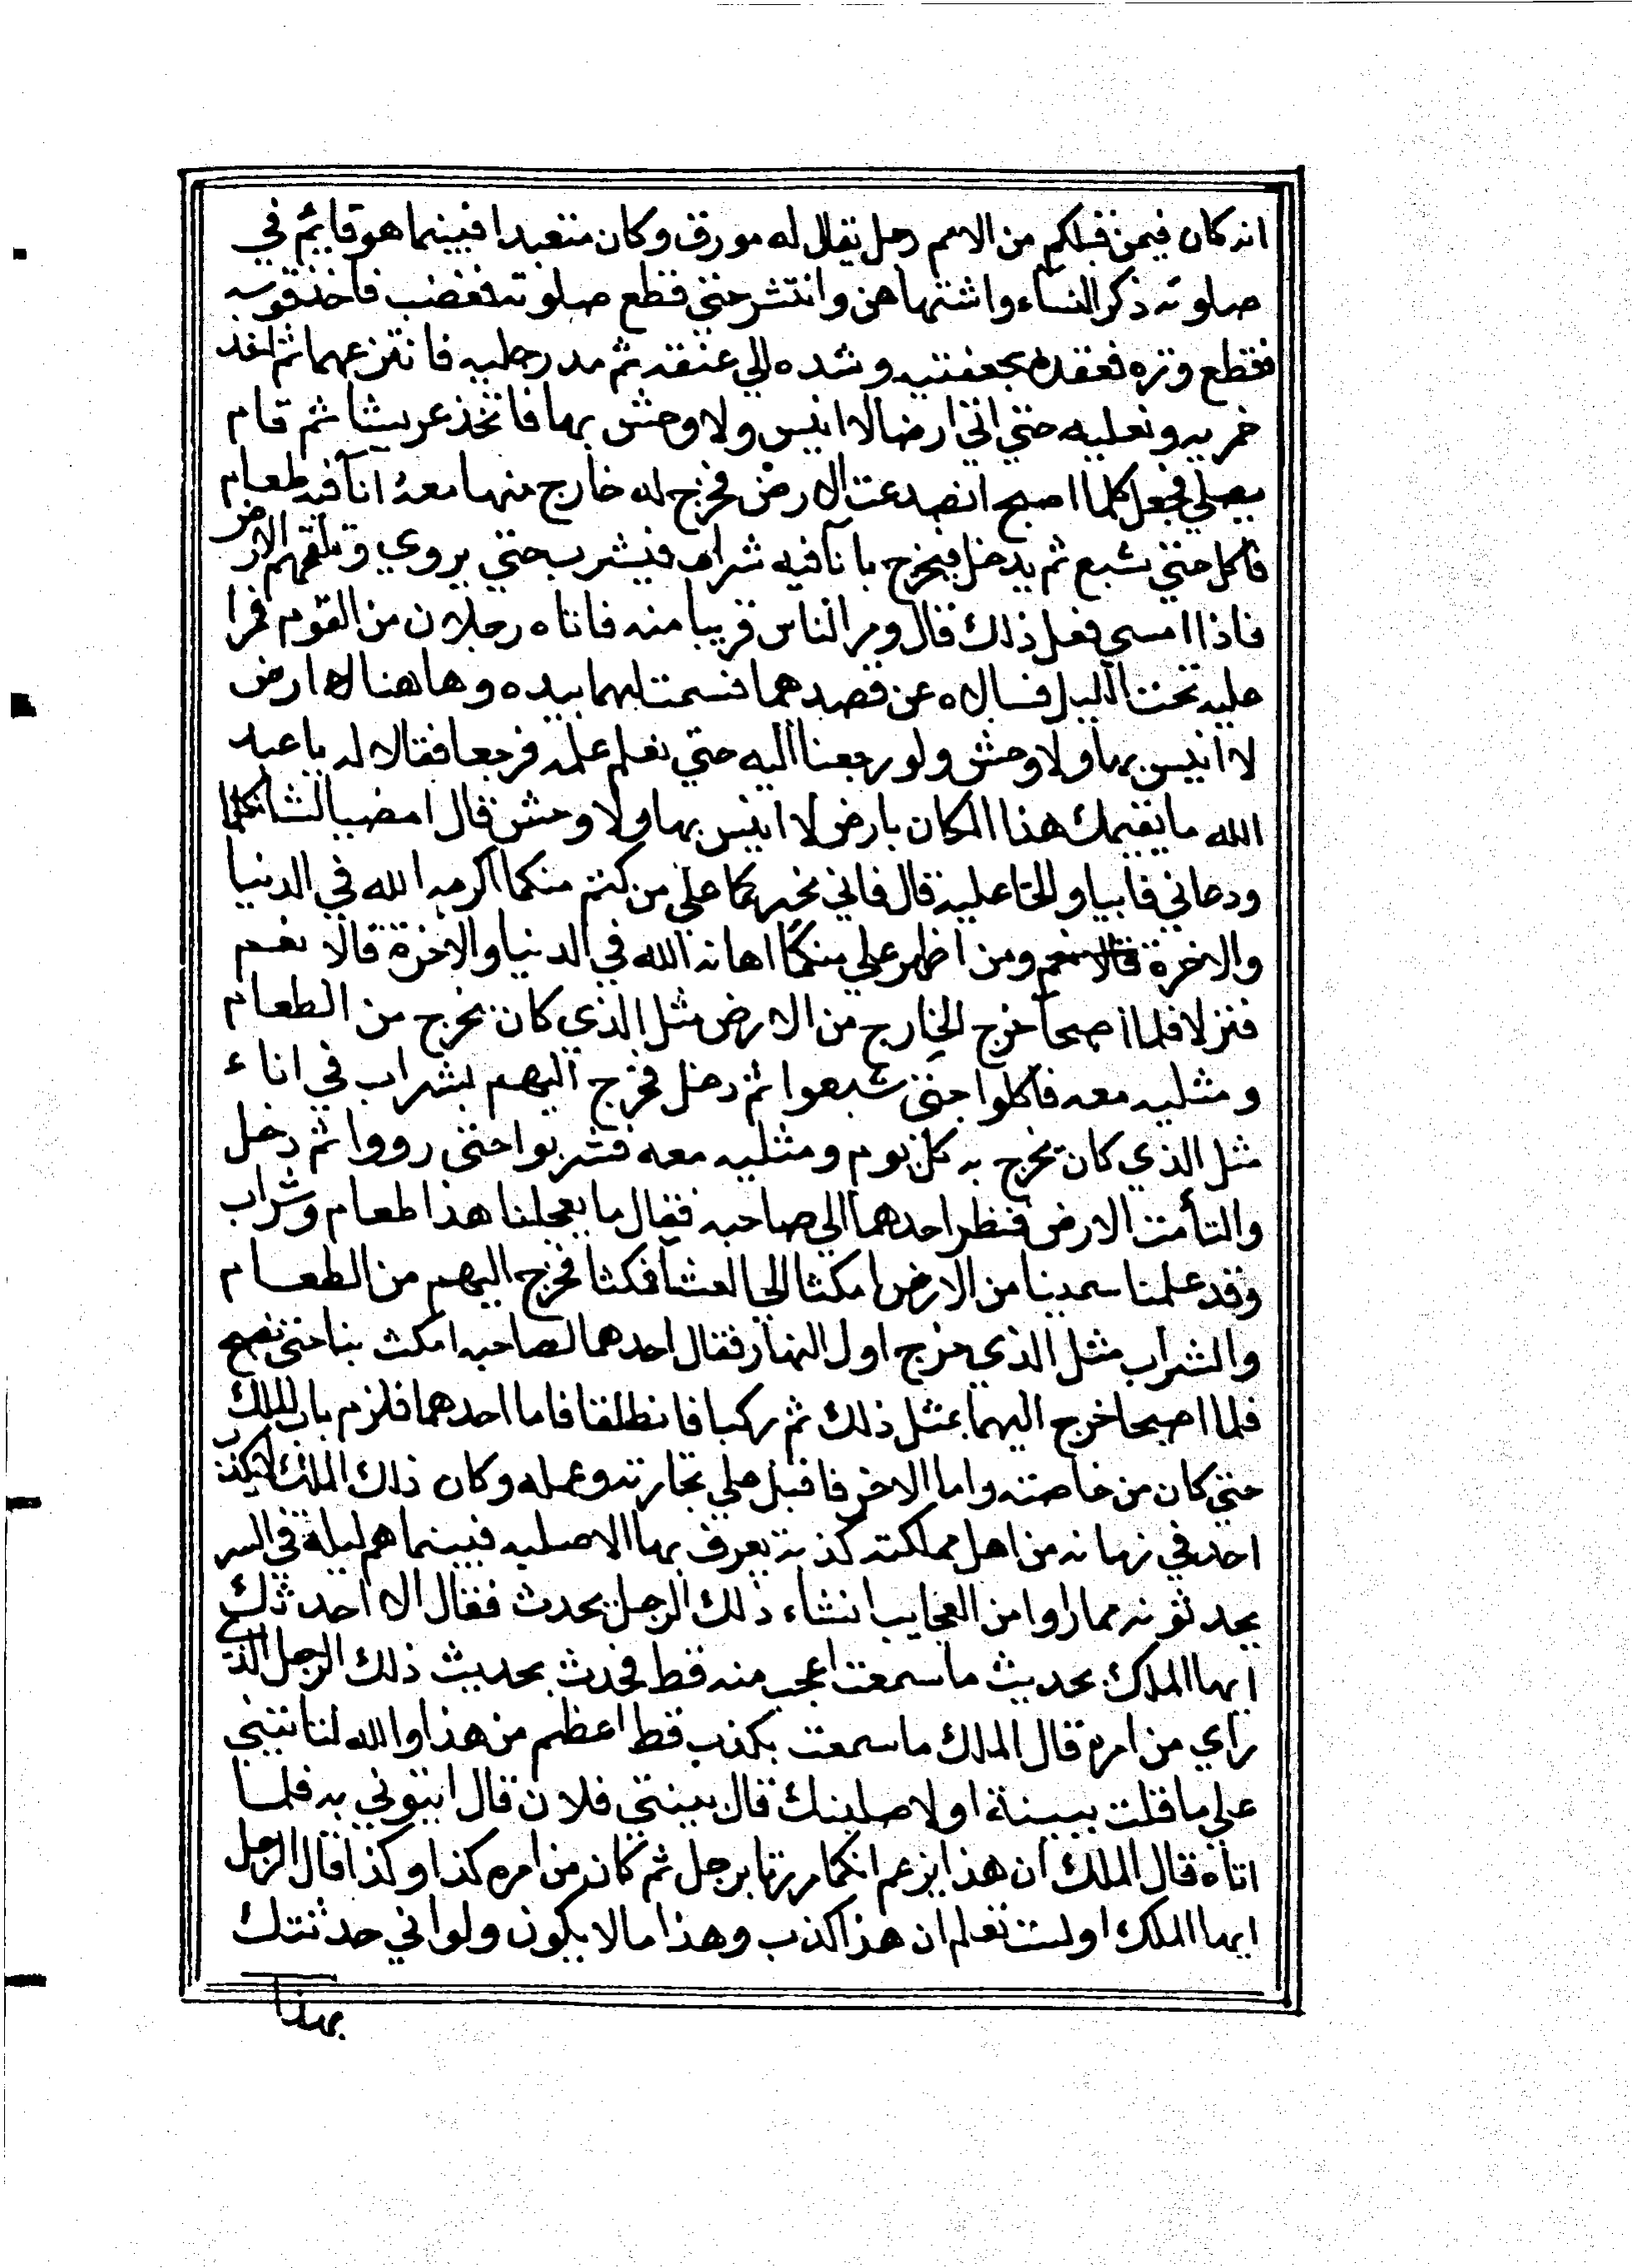 انه كان فيمن قبلكم من الامم رجل يقال له مورق وكان متعبدا فبينما هو قايم في
صلوته ذكر النساء واشتهاهن وانتشر حتي قطع صلوته فغضب فاخذ قوسه
فقطع وتره فعقده بخصيتيه وشده الي عنقه ثم مد رجليه فانتزعهما ثم اخذ
طمريه ونعليه حتي اتي ارضا لا انيس ولا وحش بها فاتخذ عريشا ثم قام
يصلي فجعل كلما اصبح انصدعت الارض فخرج له خارج منها معه انآ فيه طعام
فاكل حتي شبع ثم يدخل فيخرج بانآ فيه شراب فيشرب حتي يروي وتلتئم الارض
فاذا امسي فعل ذلك قال ومر الناس قريبا منه فاتاه رجلان من القوم فمرا
عليه تحت الليل فسالاه عن قصدهما فسمت لهما بيده وهاهنا ارض
لا انيس بها ولا وحش ولو رجعنا اليه حتي نعلم علمه فرجعا فقالا له يا عبد
الله ما يقيمك هذا المكان بارض لا انيس بها ولا وحش قال امضيا لشانكما
ودعاني فابيا والحا عليه قال فاني مخبركما علي من كتم منكما اكرمه الله في الدنيا
والاخرة قالا نعم ومن اظهر علي منكما اهانه الله في الدنيا والاخرة قالا نعم
فنزلا فلما اصبحا خرج الخارج من الارض مثل الذي كان يخرج من الطعام
ومثليه معه فاكلوا حتي شبعوا ثم دخل فخرج اليهم بشراب في اناء
مثل الذي كان يخرج به كل يوم ومثليه معه فشربوا حتي رووا ثم دخل
والتأمت الارض فنظر احدهما الي صاحبه فقال ما يعجلنا هذا طعام وشراب
وقد علمنا سمتنا من الارض امكثا الي العشآ فمكثا فخرج اليهم من الطعام
والشراب مثل الذي خرج اول النهار فقال احدهما لصاحبه امكث بنا حتي نصبح
فلما اصبحا خرج اليهما بمثل ذلك ثم ركبا فانطلقا فاما احدهما فلزم باب الملك
حتي كان من خاصته واما الاخر فاقبل علي تجارته وعمله وكان ذلك الملك لا يكذب
احد في زمانه من اهل مملكته كذبة يعرف بها الا صلبه فبينما هم ليلة في السر
يحدثونه مما راوا من العجايب انشاء ذلك الرجل يحدث فقال الا احدثك
ايها الملك بحديث ما سمعت اعجب منه قط فحدث بحديث ذلك الرجل الذي
راي من امره قال الملك ما سمعت بكذب قط اعظم من هذا والله لتاتيني
علي ما قلت ببينة او لاصلبنك قال بينتي فلان قال ايتوني به فلما
اتاه قال الملك ان هذا يزعم انكما مررتما برجل ثم كان من امره كذا وكذا قال الرجل
ايها الملك اولست تعلم ان هذا كذب وهذا ما لا يكون ولو اني حدثتك
بهذا